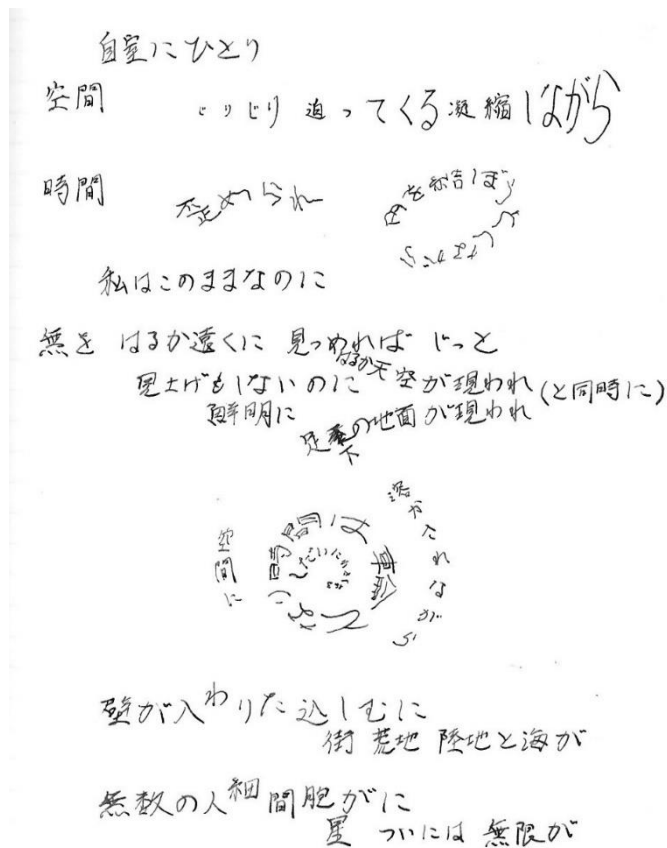 自室にひとり
空間 じりじり 迫ってくる 凝縮しながら
時間 歪められ 円を結ぼうと
私はこのままなのに
無を はるか遠くに 見つめれば じっと
見上げもしないのに はるか天空が現われ(と同時に)
鮮明に 足下の地面が現われ
空間に
時間は 輪になって
しだいに
溶かされながら
壁が入わりた込しむに
街 荒地 陸地と海が
無数の人細間胞がに
星 ついには 無限が